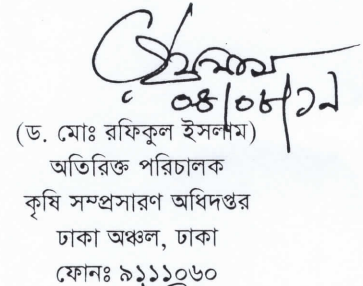 (ড. মোঃ রফিকুল ইসলাম)
অতিরিক্ত পরিচালক
কৃষি সম্প্রসারণ অধিদপ্তর
ঢাকা অঞ্চল, ঢাকা
ফোনঃ ৯১১১০৬০